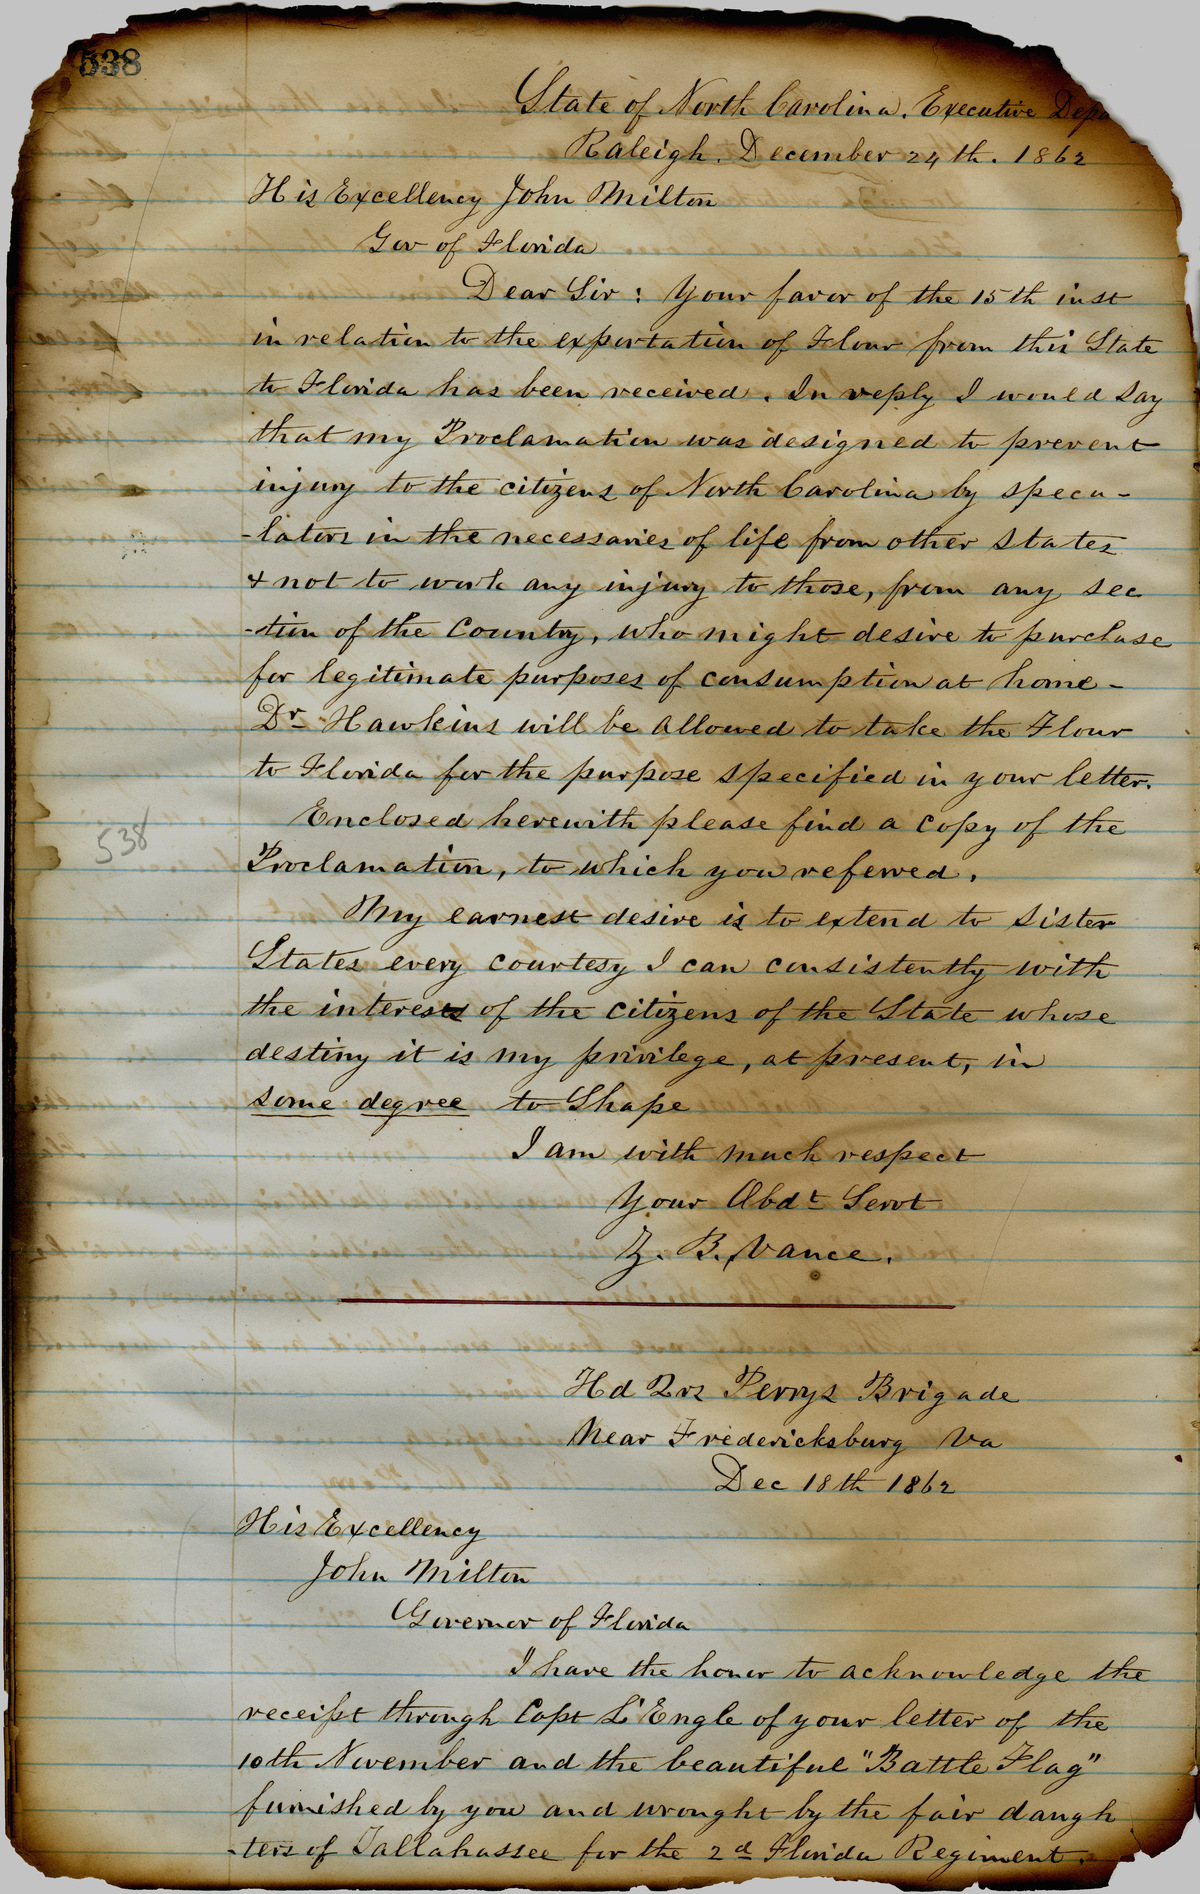 538
State of North Carolina. Executive Depa
Raleigh. December 24th. 1862
His Excellency John Milton
Gov of Florida
Dear Sir: Your favor of the 15th inst
in relation to the exportation of Flour from this State
to Florida has been received. In reply I would say
that my Proclamation was designed to prevent
injury to the citizens of North Carolina by specu-
-lators in the necessaries of life from other States
& not to work any injury to those, from any sec
-tion of the Country, who might desire to purchase
for legitimate purposes of consumption at home -
Dr Hawkins will be allowed to take the Flour
to Florida for the purpose specified in your letter.
Enclosed herewith please find a copy of the
538
Proclamation, to which you referred.
My earnest desire is to extend to sister
States every courtesy I can consistently with
the interests of the citizens of the State whose
destiny it is my privilege, at present, in
some degree to Shape
I am with much respect
Your Obdt Servt
Z. B. Vance.
Hd Qrs Perrys Brigade
Near Fredericksburg Va
Dec 18th 1862
His Excellency
John Milton
Governor of Florida
I have the honor to acknowledge the
receipt through Capt L'Engle of your letter of the
10th November and the beautiful "Battle Flag"
furnished by you and wrought by the fair daugh
-ters of Tallahassee for the 2d Florida Regiment.